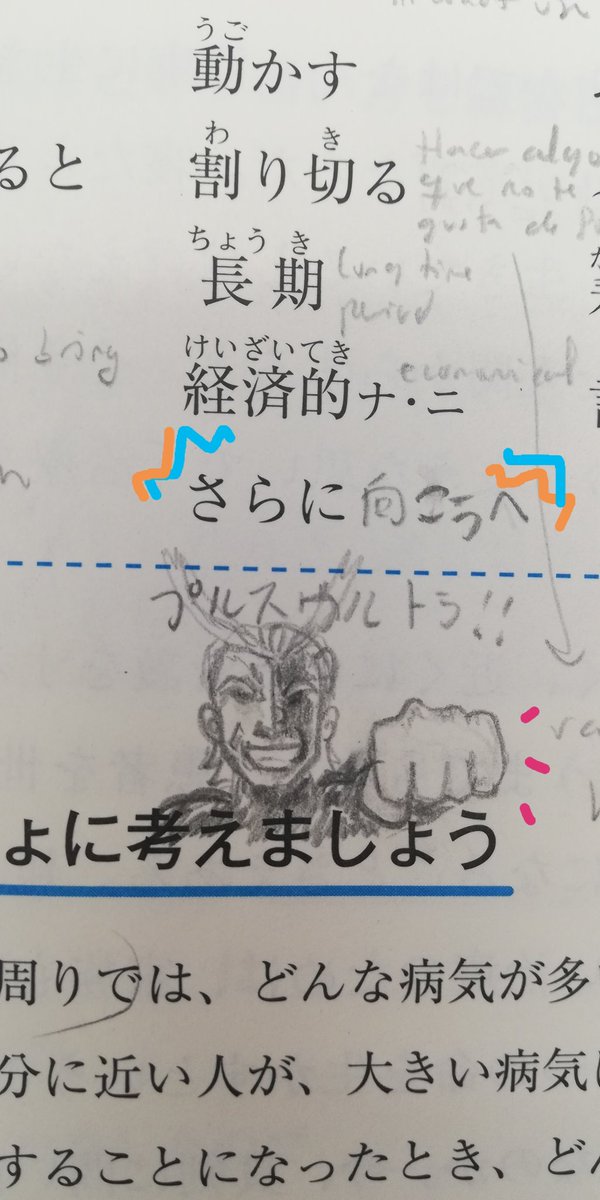 うご
動かす
わ き
割り切る
Hacer algo
que no te
gusta
ると
ちょう き
長期
long time
period
けいざいてき
経済的ナ・ニ
economical
さらに向こうへ
プルスウルトラ!!
ょに考えましょう
周りでは、どんな病気が多
分に近い人が、大きい病気
することになったとき、ど